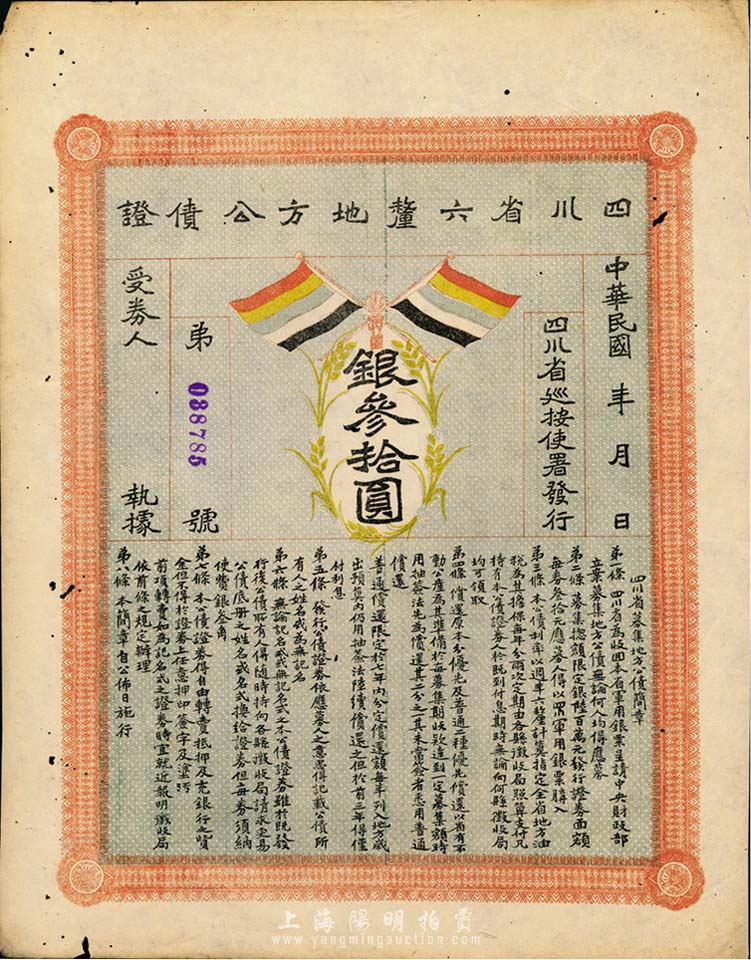 四川省六釐地方公債證
中華民國 年 月 日
四川省巡按使署發行
銀參拾圓
第 038785 號
受券人 執據
四川省募集地方公債簡章
第一條 四川省為收回本省軍用銀票呈請中央財政部
立案募集地方公債無論何人均得應募
第二條 募集總額限定銀陸百萬元發行證券面額
每券叁拾元應募人得以四川軍用銀票購入
第三條 本公債利率以週年六釐計算指定全省地方油
稅為其擔保每年分兩次定期由各縣徵收局照算支付凡
持有本公債證券人於既到付息期時無論向何縣徵收局
均可領取
第四條 償還原本分優先及普通二種優先償還以省有不
動公產為其準備於每募集期收數達到一定募集額時
用抽籤法先為償還其二分之一其未當簽者悉用普通
償還
普通償還限定於七年內分定償還額每年列入地方歲
出預算內仍用抽籤法陸續償還之但於前三年得僅
付利息
第五條 發行公債證券依應募人之意思得記載公債所
有人之姓名或為無記名
第六條 無論記名或無記名式之本公債證券雖於既發
行後公債所有人得隨時持向各縣徵收局請求更易
公債底冊之姓名或名式換給證券但每券須納
使費銀叁角
第七條 本公債證券得自由轉賣抵押及充銀行之資
金但不得於證券上任意押印簽字及塗污
前項轉賣如為記名式之證券時宜就近報明徵收局
依前條之規定辦理
第八條 本簡章自公佈日施行
上海陽明拍賣
www.yangmingauction.com